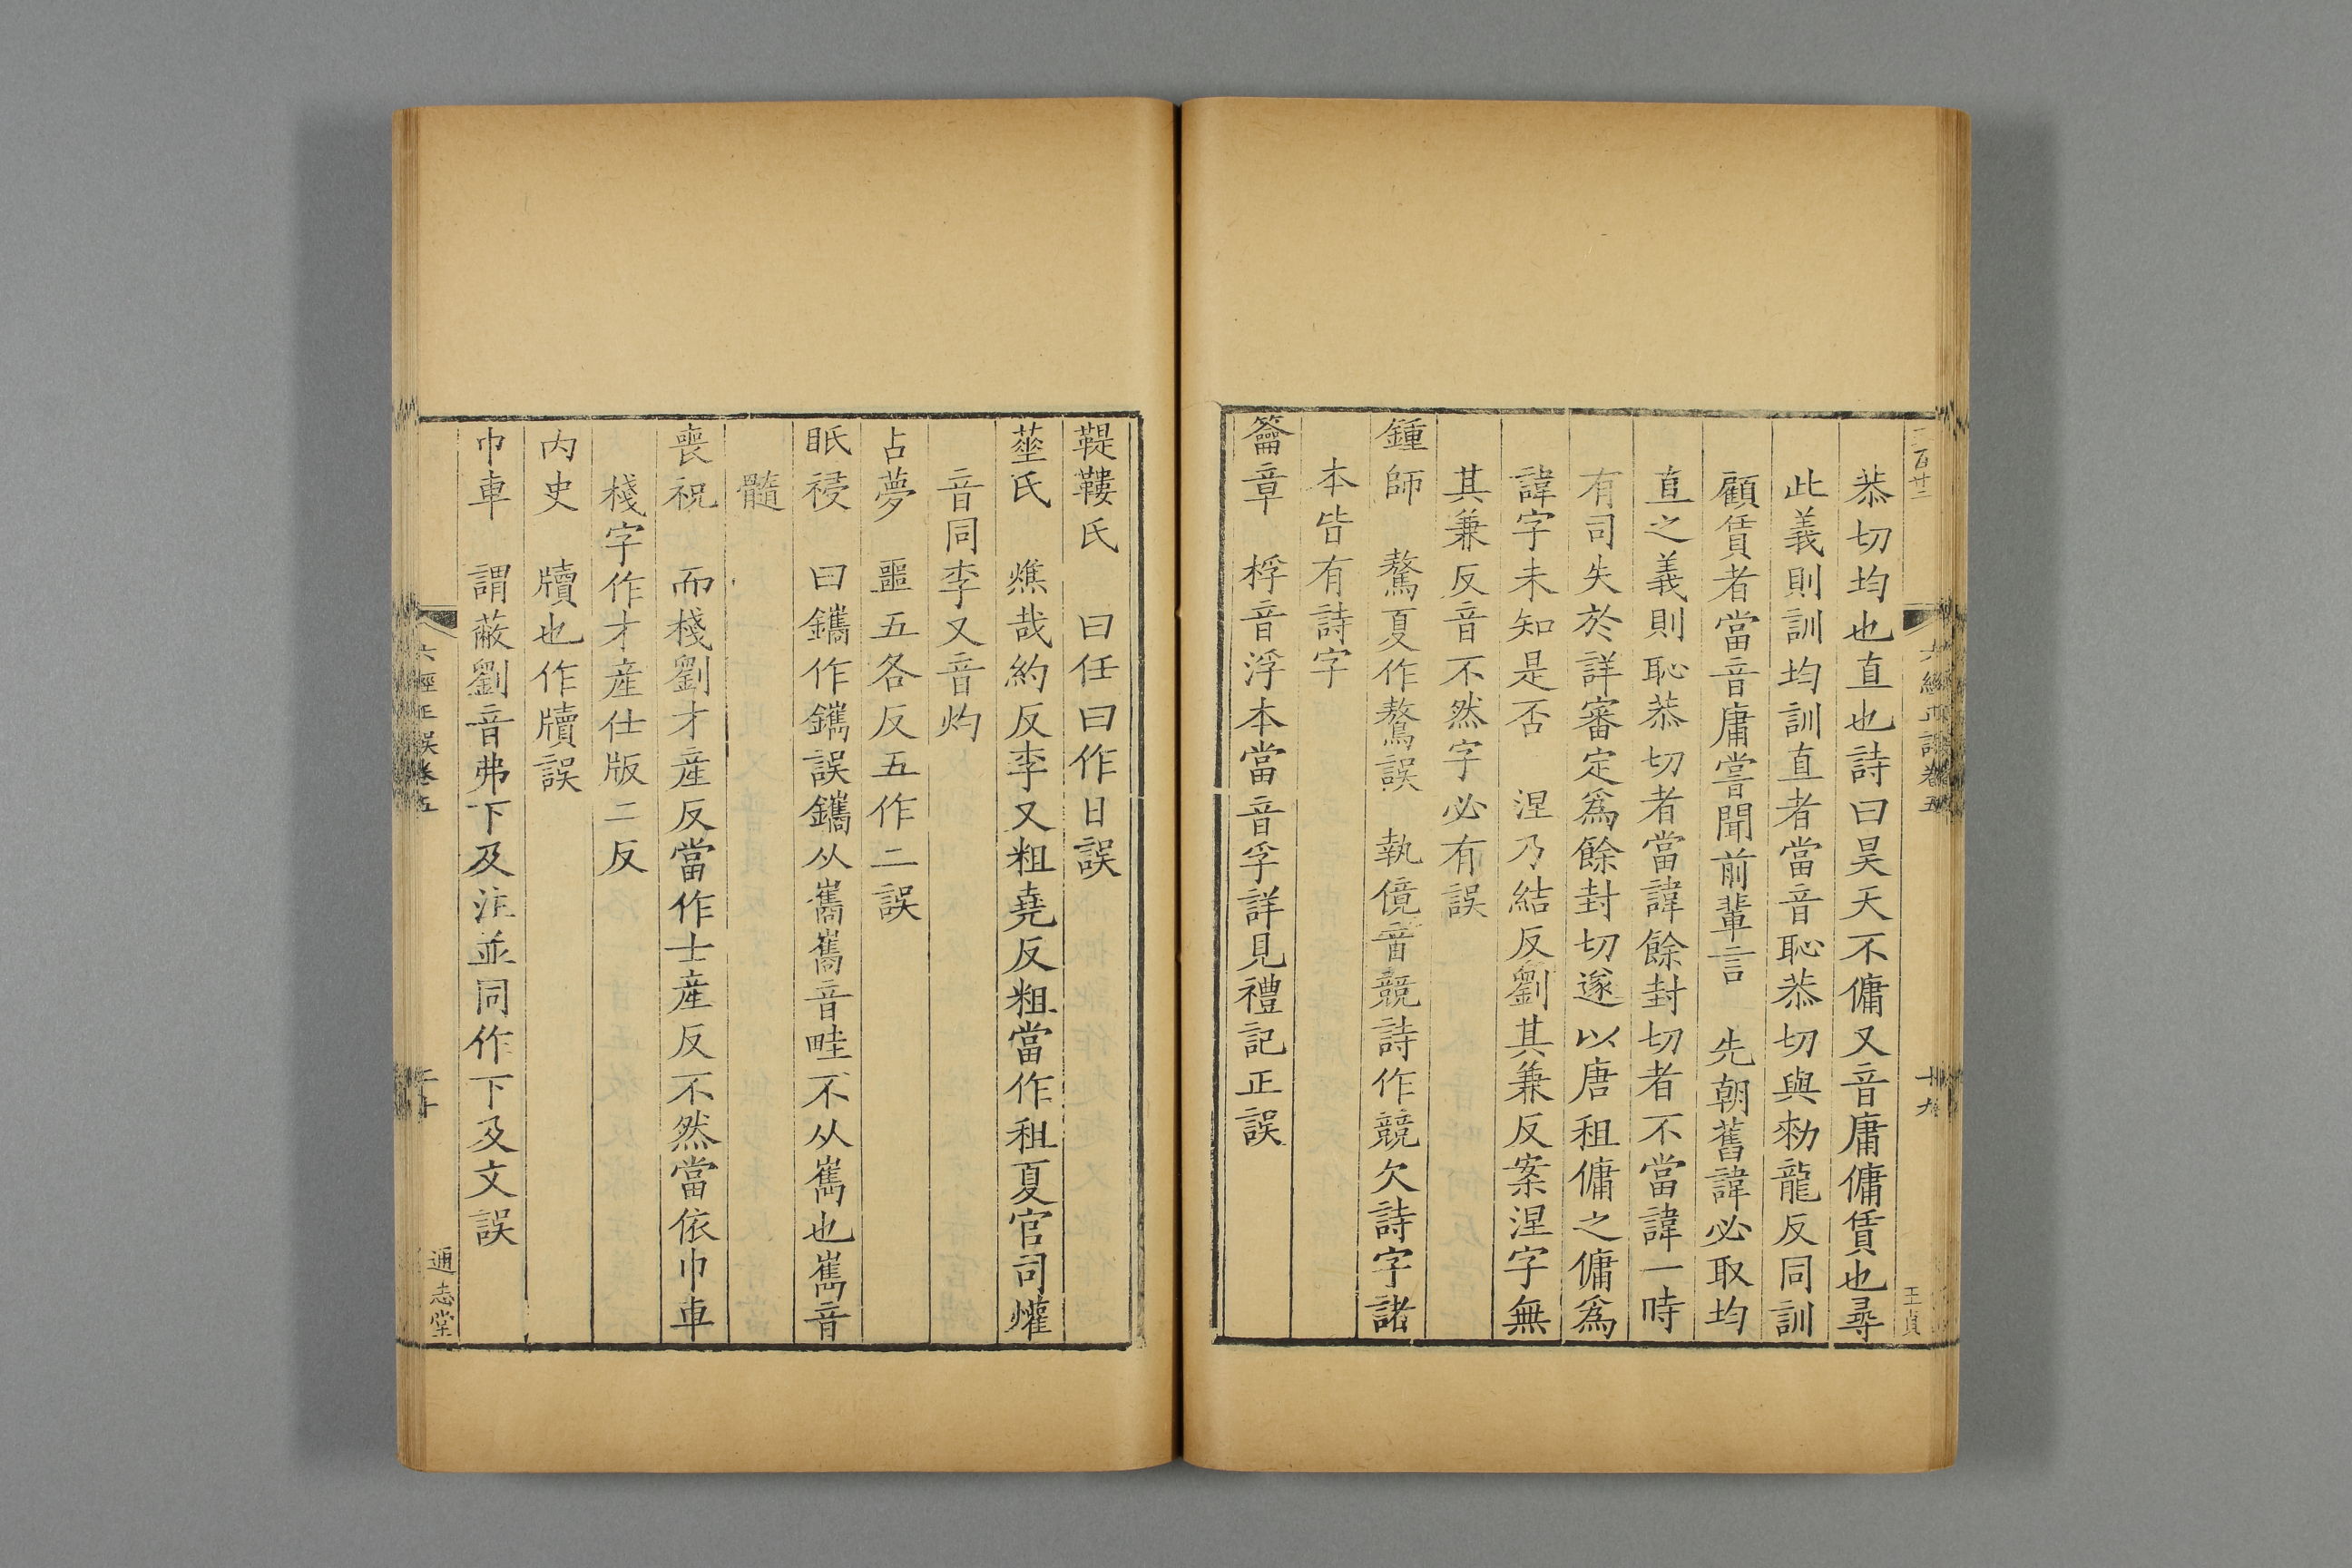 恭切均也直也詩曰昊天不傭又音庸傭賃也尋
此義則訓均訓直者當音恥恭切與勑龍反同訓
顧賃者當音庸嘗聞前輩言 先朝舊諱必取均
直之義則恥恭切者當諱餘封切者不當諱一時
有司失於詳審定爲餘封切遂以唐租傭之傭爲
諱字未知是否 涅乃結反劉其兼反案涅字無
其兼反音不然字必有誤
鍾師 驁夏作鷔誤 執傹音競詩作競欠詩字諸
本皆有詩字
籥章 桴音浮本當音孚詳見禮記正誤
六經正誤卷五
十九
王貞
鞮鞻氏 曰任曰作日誤
菙氏 燋哉約反李又粗堯反粗當作租夏官司爟
音同李又音灼
占夢 噩五各反五作二誤
眂祲 曰鑴作鐫誤鑴从巂巂音畦不从雋也雋音
髓
喪祝 而棧劉才産反當作士産反不然當依巾車
棧字作才産仕版二反
内史 牘也作牘誤
巾車 謂蔽劉音弗下及注並同作下及文誤
六經正誤卷五
二十
通志堂